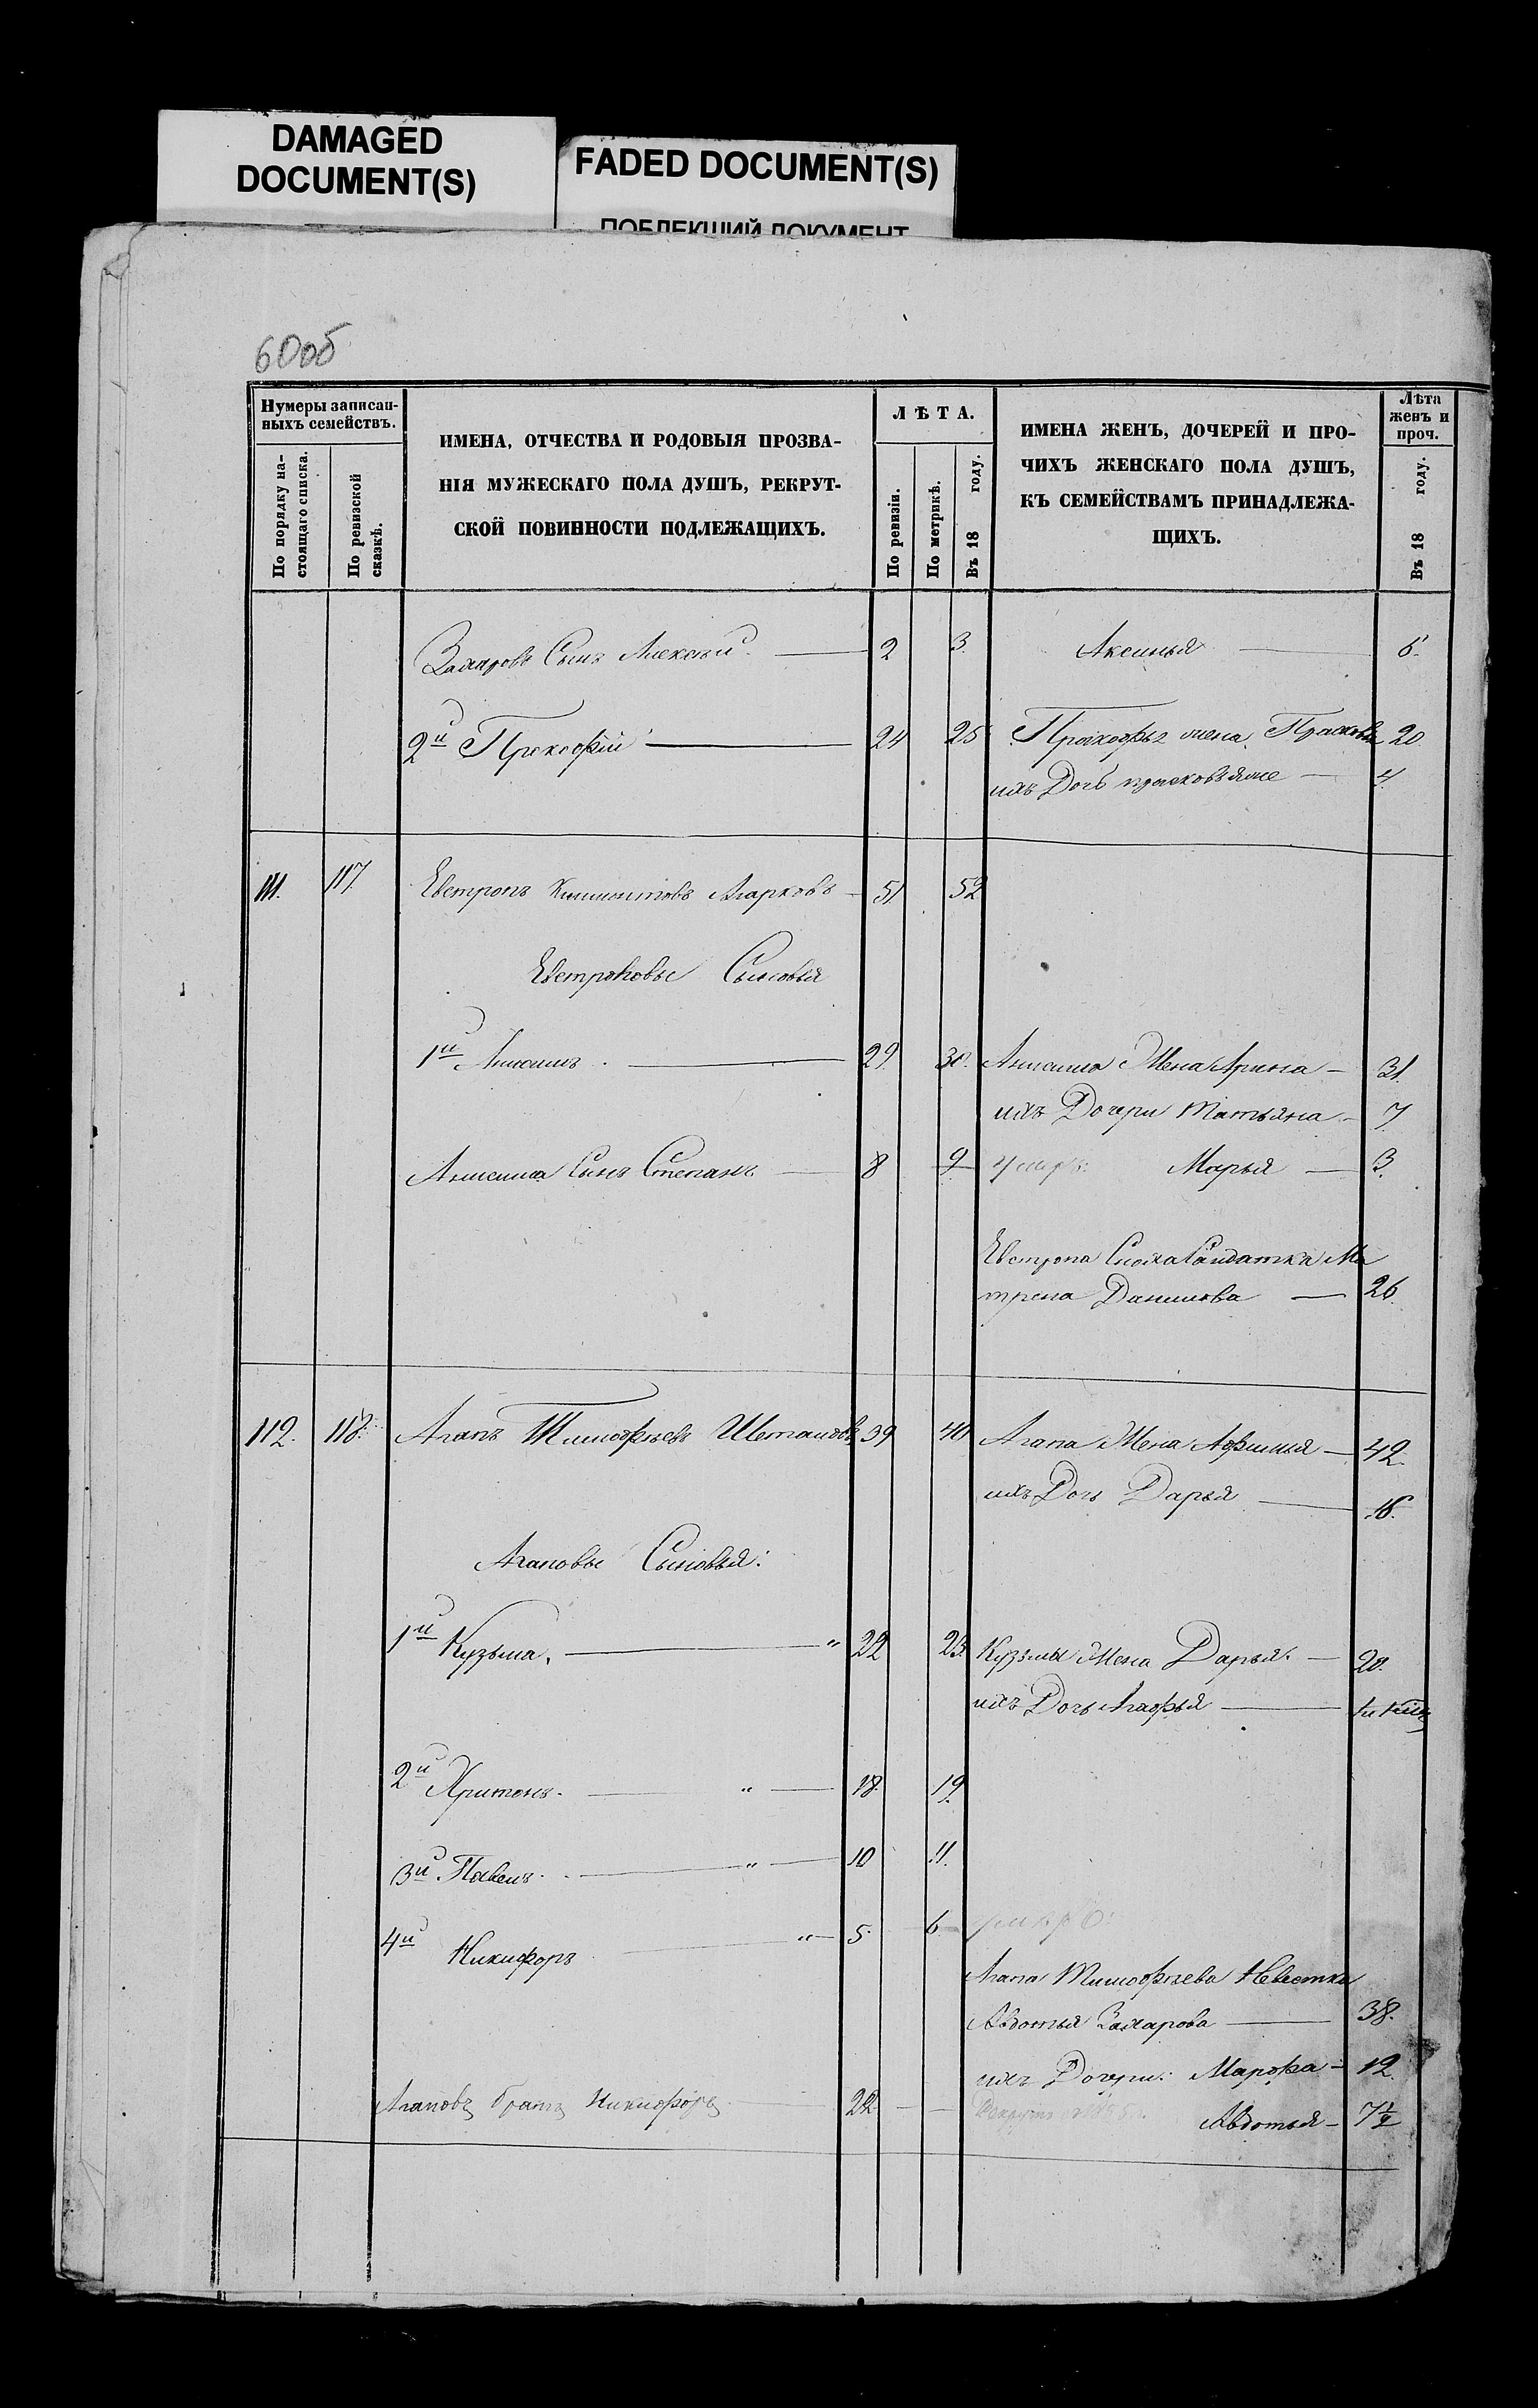 DAMAGED
DOCUMENT(S)
FADED DOCUMENT(S)
ПОБЛЕКШИЙ ДОКУМЕНТ
60об
Нумеры записан-
ныхъ семействъ.
По порядку на-
стоящаго списка.
По ревизской
сказкѣ.
ИМЕНА, ОТЧЕСТВА И РОДОВЫЯ ПРОЗВА-
НІЯ МУЖЕСКАГО ПОЛА ДУШЪ, РЕКРУТ-
СКОЙ ПОВИННОСТИ ПОДЛЕЖАЩИХЪ.
ЛѢТА.
По ревизіи.
По метрикѣ.
Въ 18 году.
ИМЕНА ЖЕНЪ, ДОЧЕРЕЙ И ПРО-
ЧИХЪ ЖЕНСКАГО ПОЛА ДУШЪ,
КЪ СЕМЕЙСТВАМЪ ПРИНАДЛЕЖА-
ЩИХЪ.
Лѣта
женъ и
проч.
Въ 18 году.
Захаровъ Сынъ Алексѣй 2 3. Аксинья 6.
2й Прокофій 24 25 Прокофья жена Прасковья 20
ихъ Дочь 4.
111. 117. Евтропъ Климонтовъ Агарковъ 51 52
Евтроповы Сыновья
1й Анисимъ 29. 30. Анисима Жена Арина 31.
ихъ Дочери Татьяна 7
Анисима Сынъ Степанъ 8 9 умеръ. Марья 3.
Евтропа Сноха Салдатка Ма
трена Данилова 26.
112. 118. Агапъ Тимофѣевъ Шеталовъ 39 40 Агапа Жена Афимья 42.
ихъ Дочь Дарья 16.
Агаповы Сыновья:
1й Кузьма, " 22 23. Кузьмы Жена Дарья. 20.
ихъ Дочь Агафья
2й Харитонъ. " 18. 19.
3й Павелъ. " 10 11.
4й Никифоръ " 5. 6. умеръ:
Агапа Тимофѣева Невестка
Авдотья Захарова 38.
ихъ Дочери: Марфа 12.
Агаповъ братъ Никифоръ 22.
Авдотья 7½